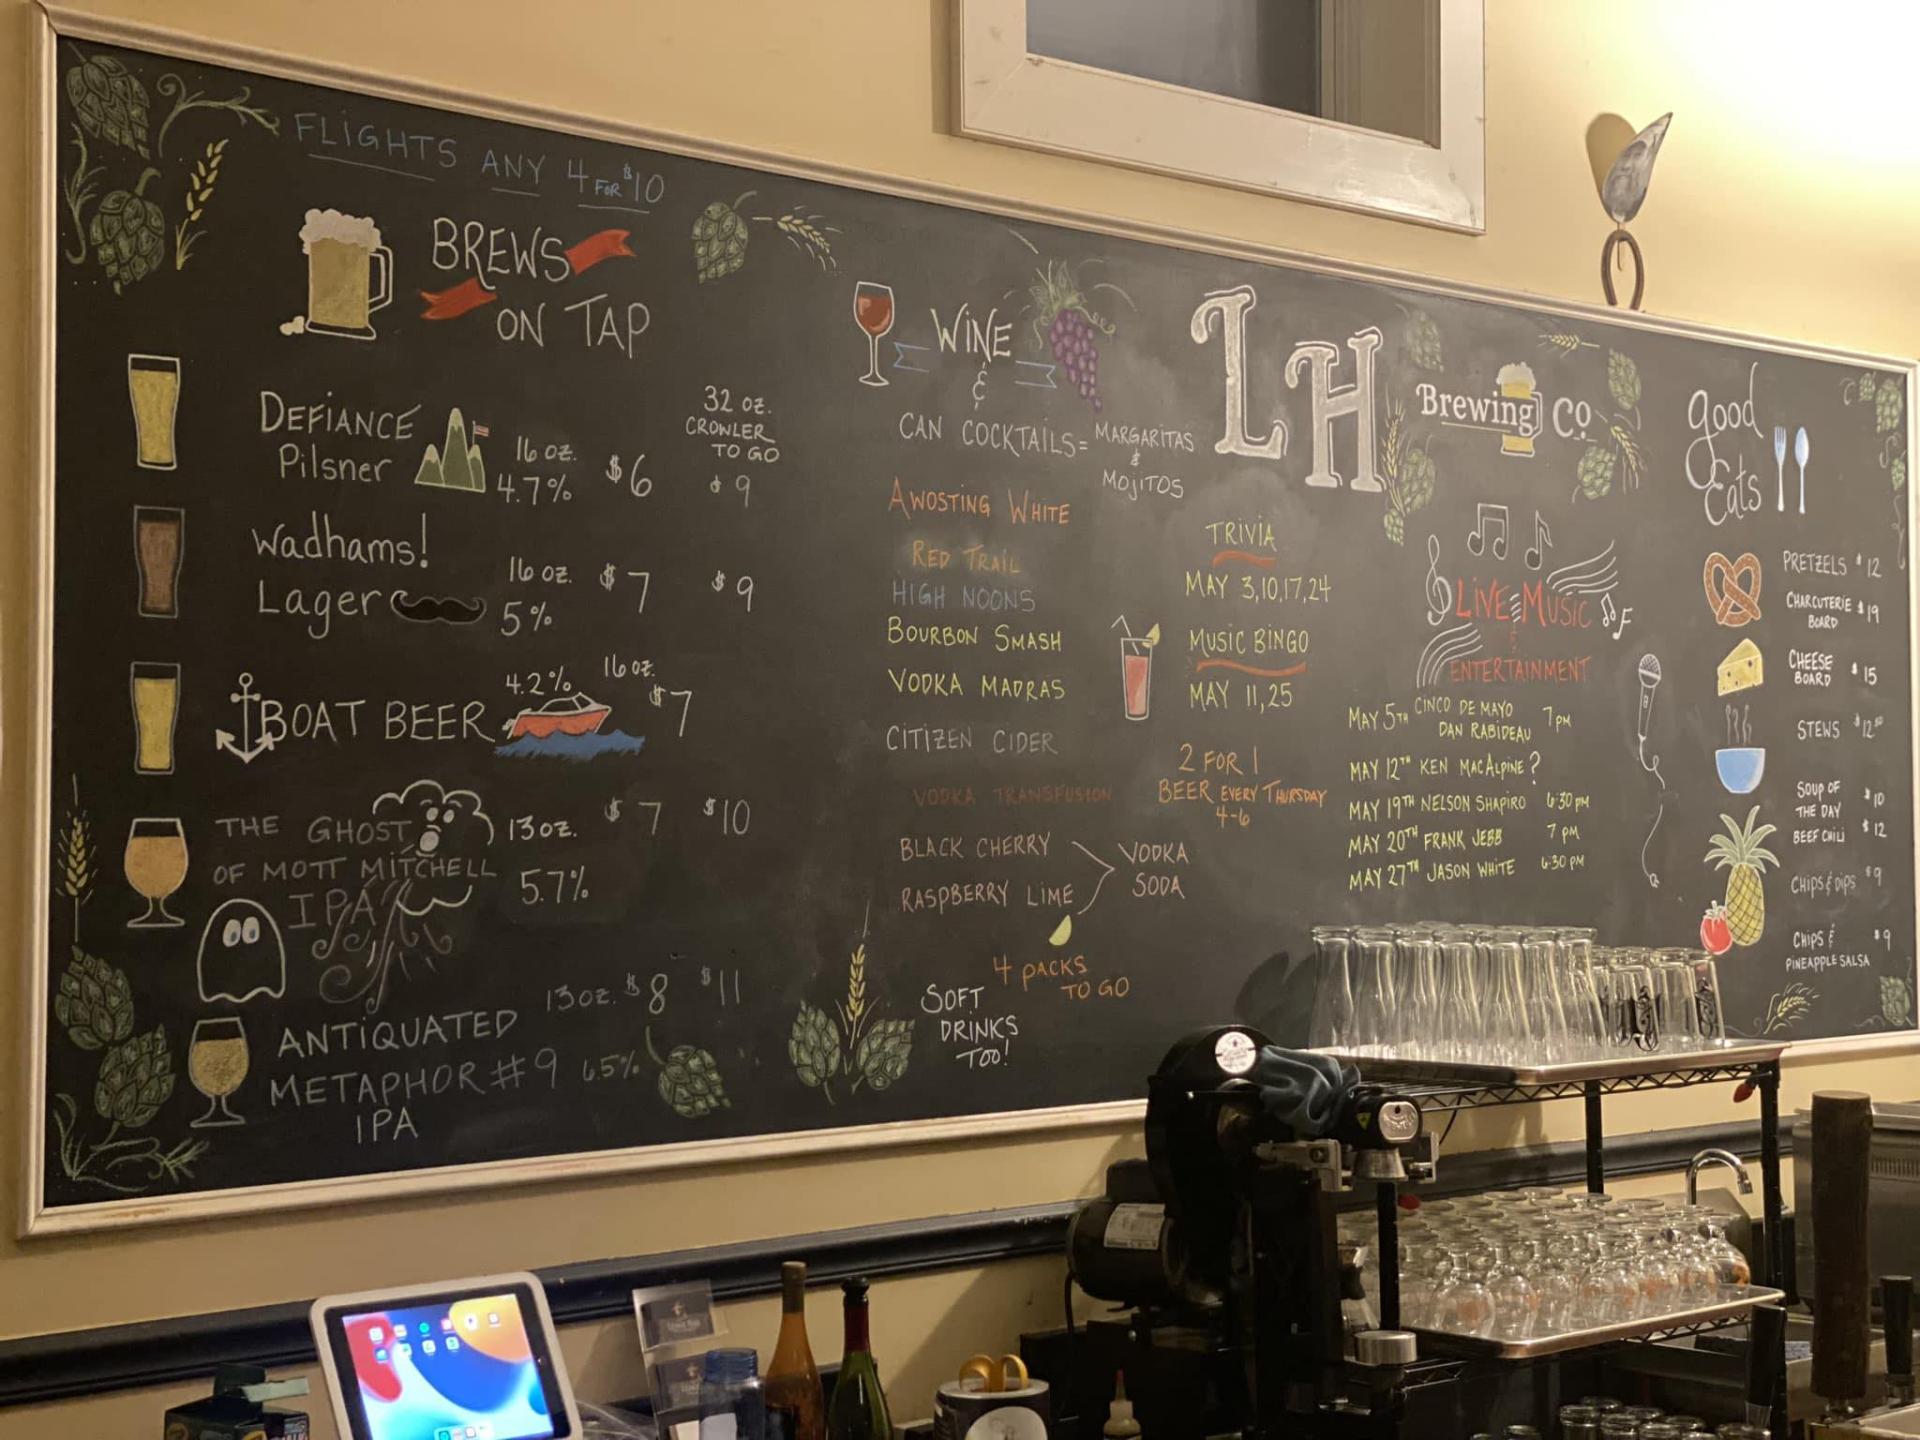 FLIGHTS ANY 4 FOR $10
BREWS
ON TAP
32 OZ.
CROWLER
TO GO
DEFIANCE
Pilsner
16 OZ.
4.7%
$6
$9
Wadhams!
Lager
16 OZ.
5%
$7
$9
BOAT BEER
4.2%
16 OZ.
$7
THE GHOST
OF MOTT MITCHELL
IPA
13 OZ.
5.7%
$7
$10
ANTIQUATED
METAPHOR #9
IPA
13 OZ. $8 $11
6.5%
WINE
&
CAN COCKTAILS = MARGARITAS
&
MOJITOS
AWOSTING WHITE
RED TRAIL
HIGH NOONS
BOURBON SMASH
VODKA MADRAS
CITIZEN CIDER
VODKA TRANSFUSION
BLACK CHERRY
RASPBERRY LIME
VODKA
SODA
4 PACKS
TO GO
SOFT
DRINKS
TOO!
LH
Brewing Co
TRIVIA
MAY 3,10,17,24
MUSIC BINGO
MAY 11,25
2 FOR 1
BEER EVERY THURSDAY
4-6
LIVE MUSIC
&
ENTERTAINMENT
MAY 5TH CINCO DE MAYO
DAN RABIDEAU 7 PM
MAY 12TH KEN MACALPINE?
MAY 19TH NELSON SHAPIRO 6:30 PM
MAY 20TH FRANK JEBB 7 PM
MAY 27TH JASON WHITE 6:30 PM
good
Eats
PRETZELS $12
CHARCUTERIE $19
BOARD
CHEESE
BOARD $15
STEWS $12.50
SOUP OF
THE DAY $10
BEEF CHILI $12
CHIPS & DIPS $9
CHIPS & $9
PINEAPPLE SALSA